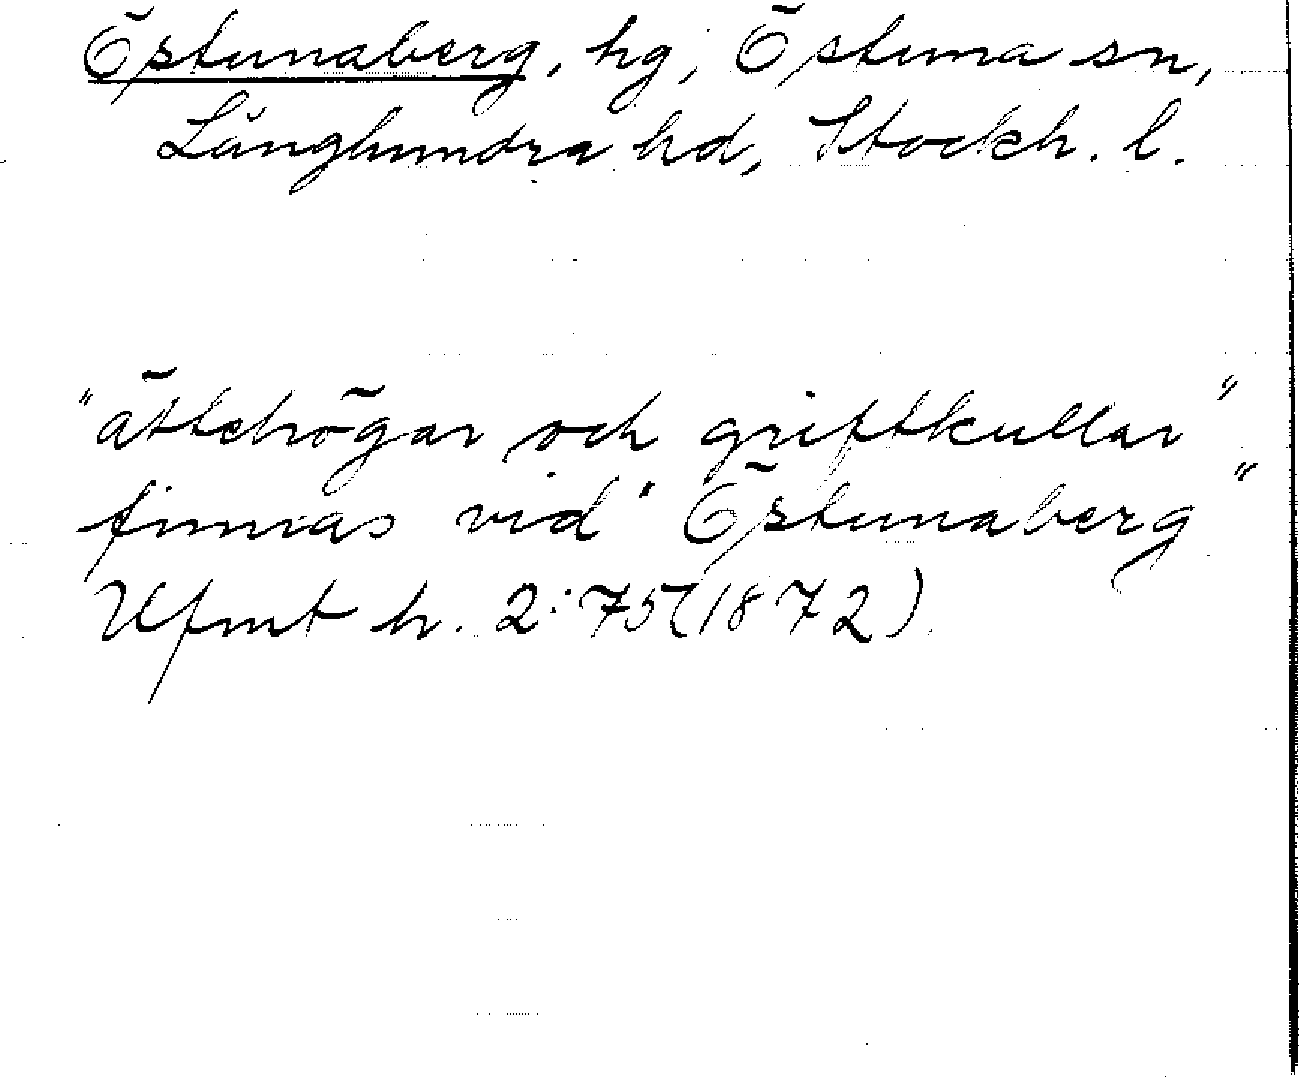 Östunaberg, hg, Östuna sn,
Långhundra hd, Stockh. l.
"ättehögar och griftkullar"
finnas vid "Östunaberg"
Ufmt h. 2:75(1872).